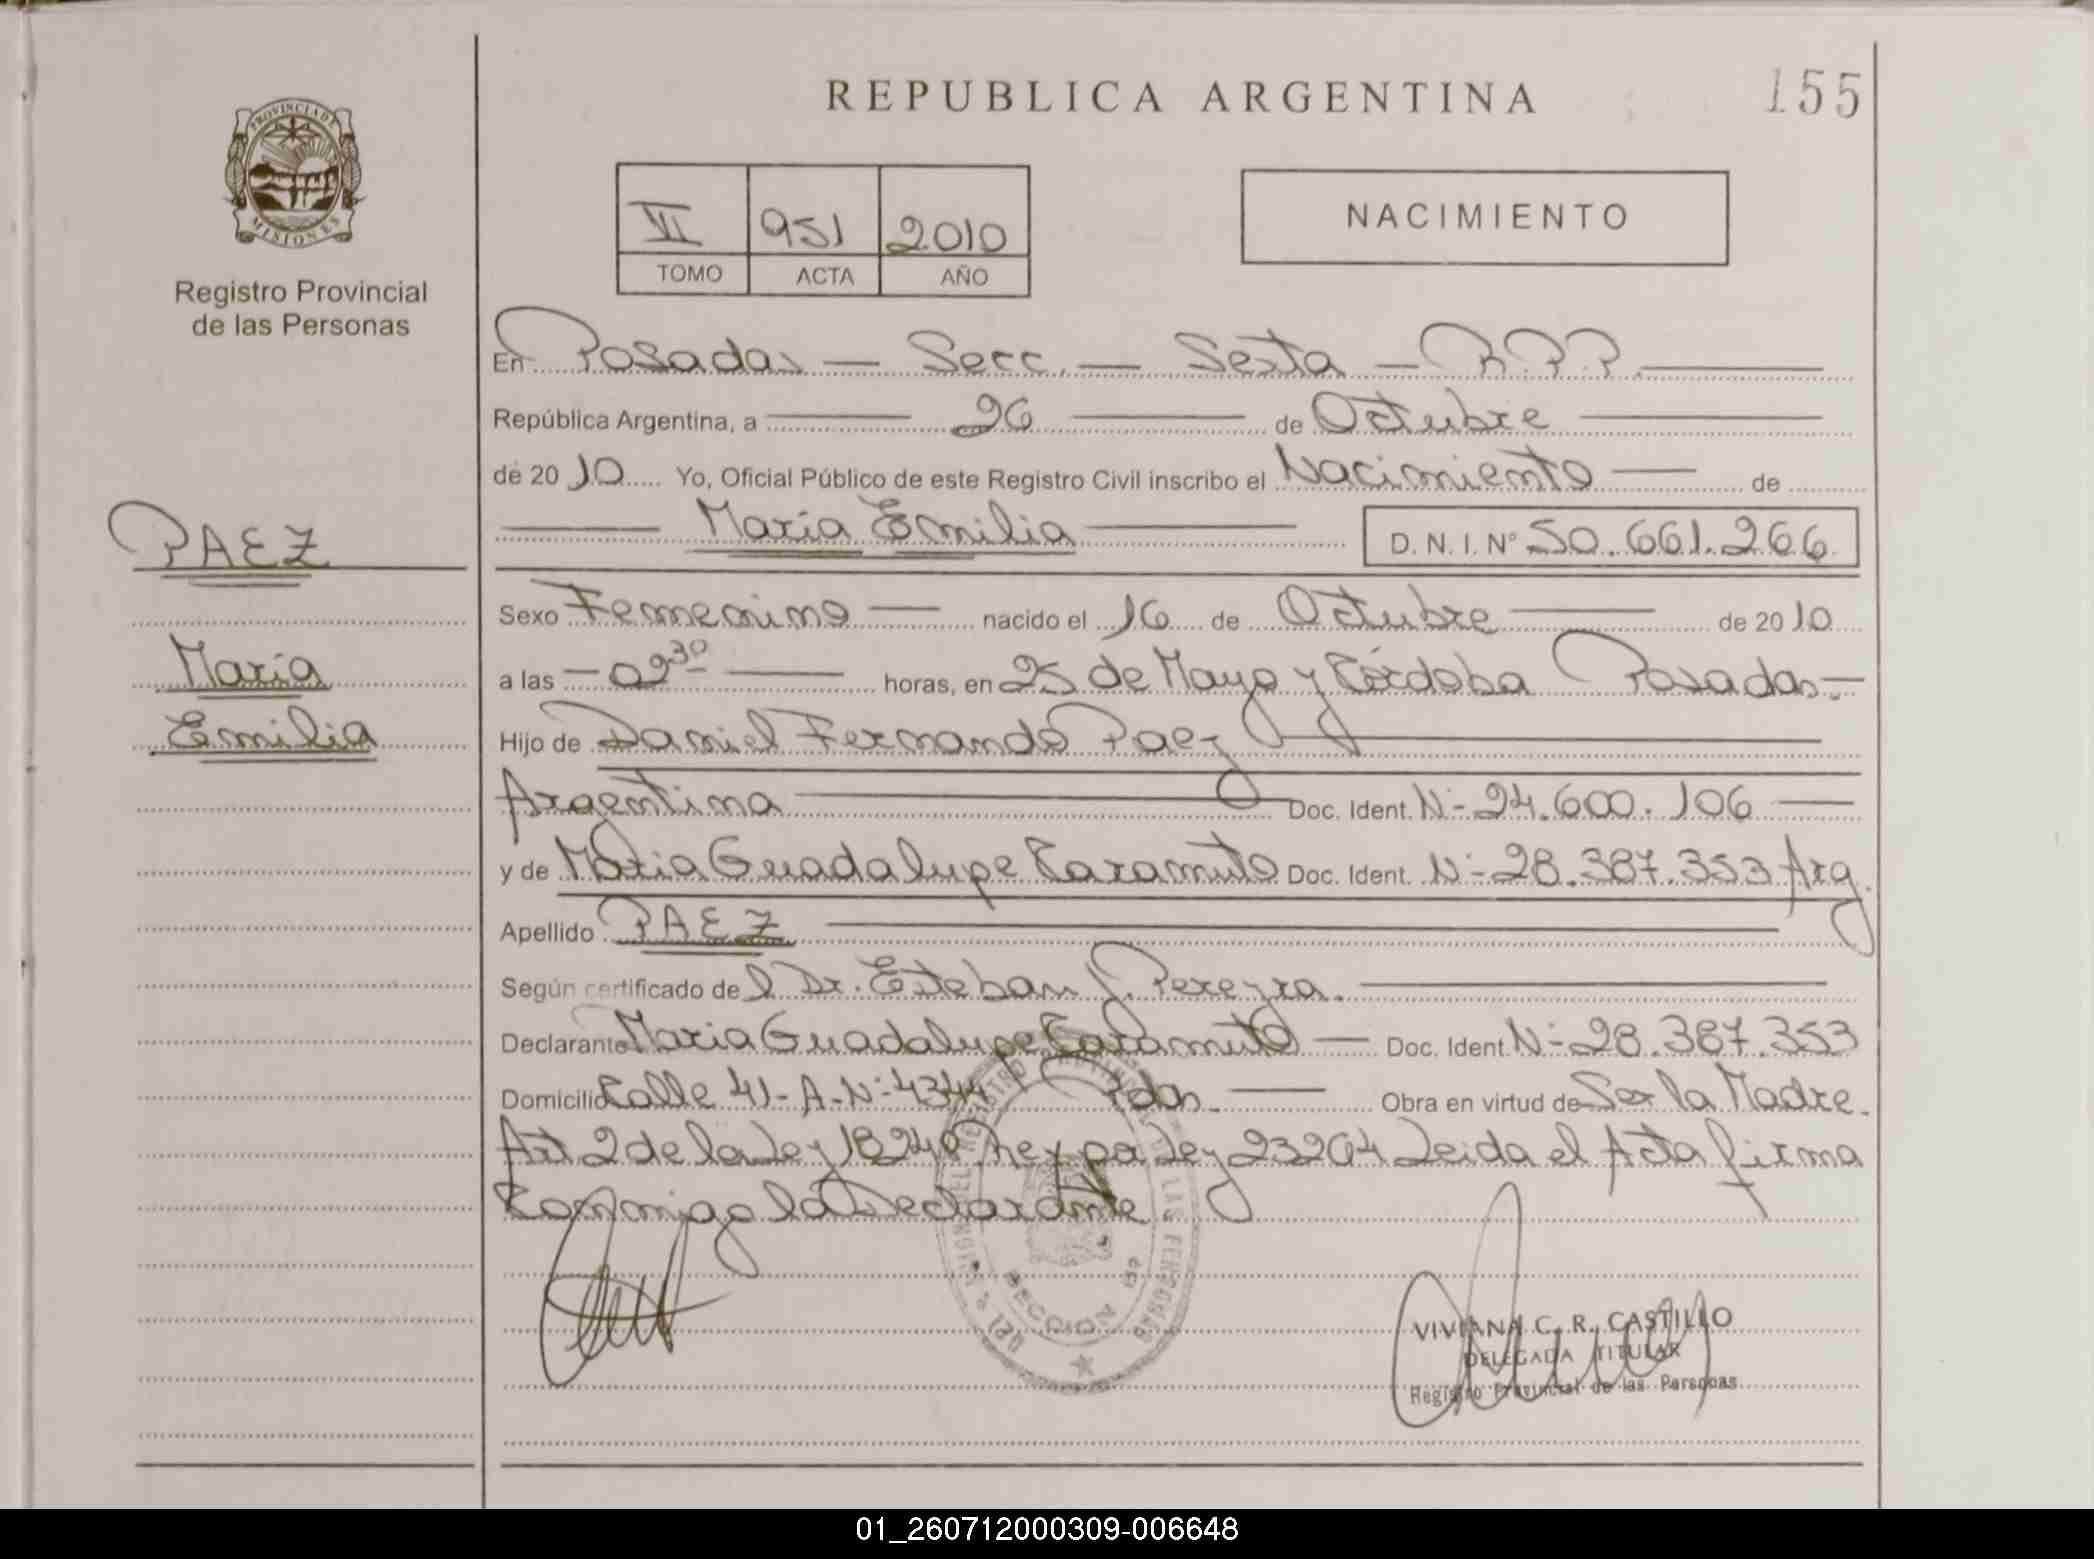 REPUBLICA ARGENTINA
155
PROVINCIA DE MISIONES
Registro Provincial
de las Personas
VII 951 2010
TOMO ACTA AÑO
NACIMIENTO
En Posadas — Secc. — Sexta — R.P.P.
República Argentina, a 26 de Octubre
de 2010 Yo, Oficial Público de este Registro Civil inscribo el Nacimiento — de
María Emilia D.N.I.N° 50.661.266
PAEZ
María
Emilia
Sexo Femenino — nacido el 16 de Octubre — de 2010
a las — 0930 — horas, en 25 de Mayo y Córdoba Posadas.—
Hijo de Daniel Fernando Paez
Argentina Doc. Ident. N- 24.600.106 —
y de Maria Guadalupe Caramuto Doc. Ident. N- 28.387.353 Arg.
Apellido PAEZ
Según certificado del Dr. Esteban J. Pereyra.
Declarante Maria Guadalupe Caramuto — Doc. Ident. N- 28.387.353
Domicilio Calle 41-A-N- 4344 Pdas. — Obra en virtud de Ser la Madre.
Art 2 de la Ley 18248 por Ley 23264 Leida el Acta firma
Conmigo la Declarante
SECCION
VIVIANA C. R. CASTILLO
DELEGADA TITULAR
Registro Provincial de las Personas
01_260712000309-006648